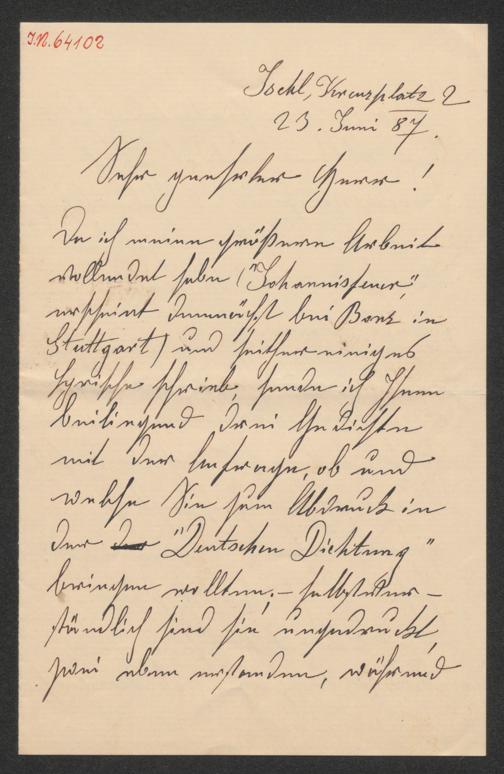 J.N. 64102
Ischl, Kreuzplatz 2
23. Juni 87.
Sehr geehrter Herr!
Da ich meine größere Arbeit
vollendet habe ("Johannisfeuer",
erscheint demnächst bei Bonz in
Stuttgart) und seither einiges
lyrische schrieb, sende ich Ihnen
beiliegend drei Gedichte
mit der Anfrage, ob und
welche Sie zum Abdruck in
der der "Deutschen Dichtung"
bringen wollten. – Selbstver-
ständlich sind sie ungedruckt,
zwei eben entstanden, während